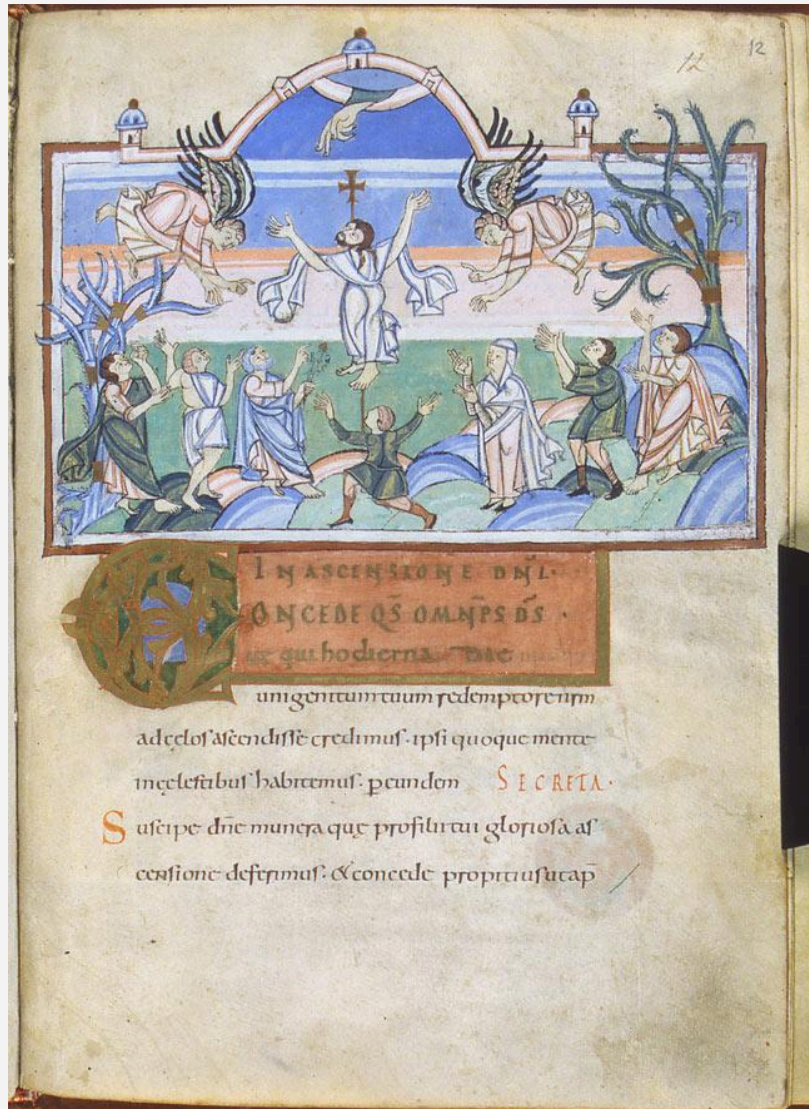 12 12
IN ASCENSIONE DN̄I·
CONCEDE QS̄ OMNP̄S DS̄ ·
ut qui hodierna die
unigenitum tuum redemptorē nr̄m
ad cęlos ascendisse credimus· ipsi quoque mente
in cęlestibus habitemus· ꝑ eundem SECRETA·
Suscipe dn̄e munera quę pro filii tui gloriosa as
censione deferimus· & concede propitius ut a p̄